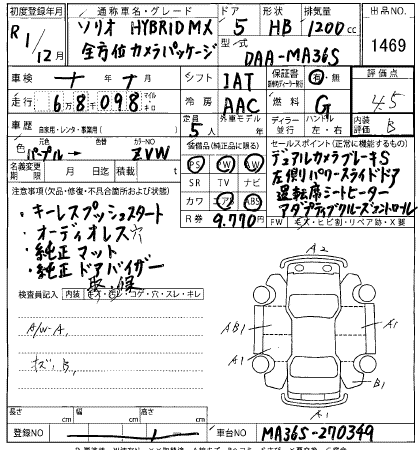 初度登録年月 通称車名・グレード ドア 形状 排気量 出品NO.
R1/12月 ソリオ HYBRID MX 5 HB 1200cc 1469
全方位カメラパッケージ
型式 DAA-MA36S
車検 十年十月 シフト IAT 保証書 有・無 評価点 4.5
走行 6万8千098 マイル キロ 冷房 AAC 燃料 G
車歴 自家用・レンタ・事業用( ) 定員 5人 外車モデル 年 ディーラー 並行 ハンドル 左・右 内装 B
色 元色 パープル → カラーNO ZVW
名義変更期限 月 日 積載量 t
装備品(純正品に限る)
PS PW AW
SR TV ナビ
カワ エアB ABS
R券 9,770円
セールスポイント(正常に機能するもの)
デュアルカメラブレーキS
左側パワースライドドア
運転席シートヒーター
アダプティブクルーズコントロール
FW キズ・ヒビ割・リペア跡・X要
注意事項(欠品・修復・不具合箇所および状態)
・キーレスプッシュスタート
・オーディオレス穴
・純正マット
・純正ドアバイザー
取・保
検査員記入 内装 キズ・汚レ・コゲ・穴・スレ・キレ
A/W・A、
キズ・B、
A2
AB1 A1
A1 B1
A1
長さ cm 幅 cm 高さ cm
登録NO 車台NO MA36S-270349